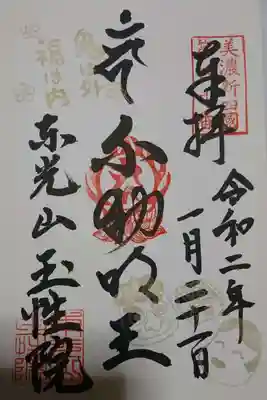 美濃新四国
奉拝
令和二年
一月二十一日
不動明王
鬼は外
福は内
東光山 玉性院